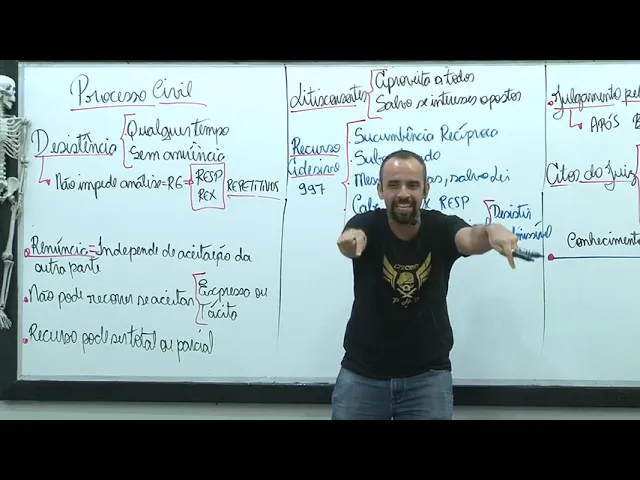 Processo Civil
Desistência
Qualquer tempo
Sem anuência
Não impede análise = RG
RESP
REX
REPETITIVOS
Renúncia = Independe de aceitação da
outra parte
Não pode recorrer se aceitar
Expresso ou
Tácito
Recurso pode ser total ou parcial
Litisconsortes
Aproveita a todos
Salvo se interesses opostos
Recurso
Adesivo
997
Sucumbência Recíproca
salvo Lei
RESP
Desistir
Julgamento pel
APÓS
Citos do Juiz
Conhecimento